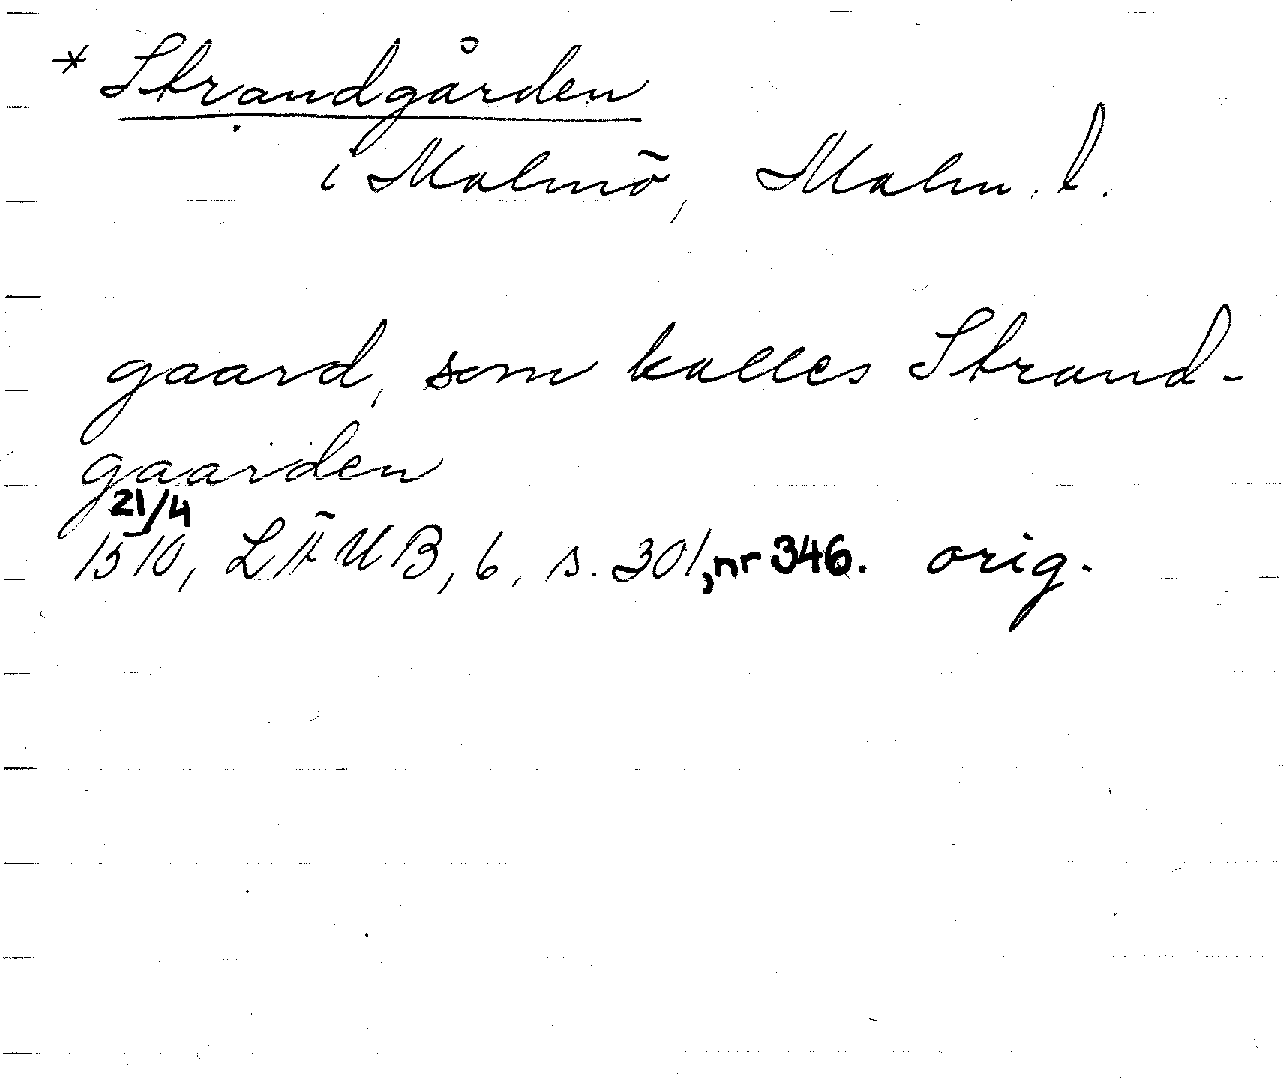 * Strandgården
i Malmö, Malm. l.
gaard, som kalles Strand-
gaarden
21/4
1510, LÄUB, 6, s. 301, nr 346. orig.